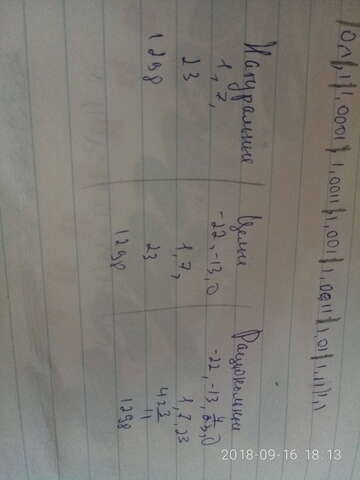 1,0001 1,0011 1,001 1,0011 1,01 1,11 1,1
Натуральные Целые Рациональные
1, 7, -22, -13, 0 -22, -13, 0
23 1, 7, 1, 7, 23
1298 23 11
1298 1298
2018-09-16 18:13